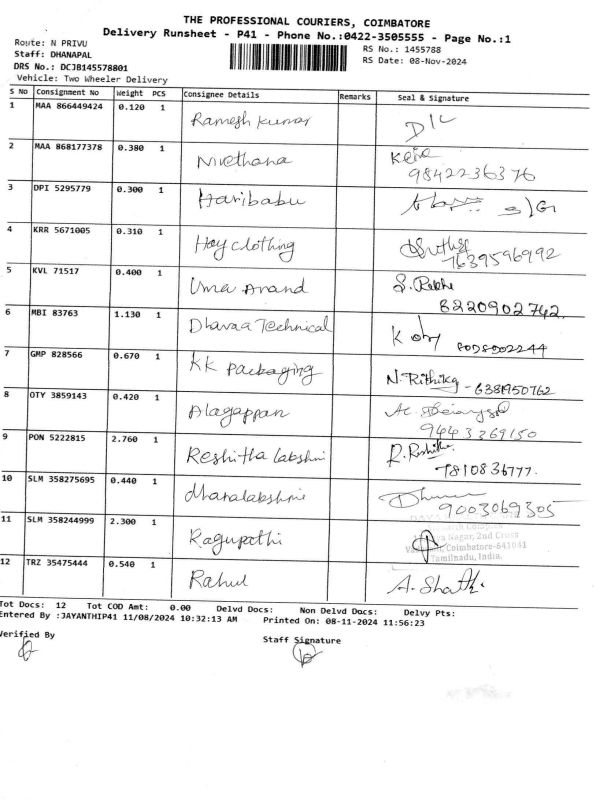 THE PROFESSIONAL COURIERS, COIMBATORE
Delivery Runsheet - P41 - Phone No.:0422-3505555 - Page No.:1
Route: N PRIVU
RS No.: 1455788
Staff: DHANAPAL
RS Date: 08-Nov-2024
DRS No.: DCJB145578801
Vehicle: Two Wheeler Delivery
S No Consignment No Weight PCS Consignee Details Remarks Seal & Signature
1 MAA 866449424 0.120 1 Ramesh Kumar
2 MAA 868177378 0.380 1 Nivethana
9842236376
3 DPI 5295779 0.300 1 Haribabu
4 KRR 5671005 0.310 1 Hoy clothing
7639596992
5 KVL 71517 0.400 1 Uma Anand S. Rekha
8220902742.
6 MBI 83763 1.130 1 Dhavaa Technical
7 GMP 828566 0.670 1 KK packaging N. Rithika - 6381950762
8 OTY 3859143 0.420 1 Alagappan
9443269150
9 PON 5222815 2.760 1 Reshitha labshmi R. Roshitha
7810836777.
10 SLM 358275695 0.440 1 dhanalabshmi
9003069305
11 SLM 358244999 2.300 1 Ragupathi
Nagar, 2nd Cross
Coimbatore-641041
Tamilnadu, India.
12 TRZ 35475444 0.540 1 Rahul
Tot Docs: 12 Tot COD Amt: 0.00 Delvd Docs: Non Delvd Docs: Delvy Pts:
Entered By :JAYANTHIP41 11/08/2024 10:32:13 AM Printed On: 08-11-2024 11:56:23
Verified By Staff Signature